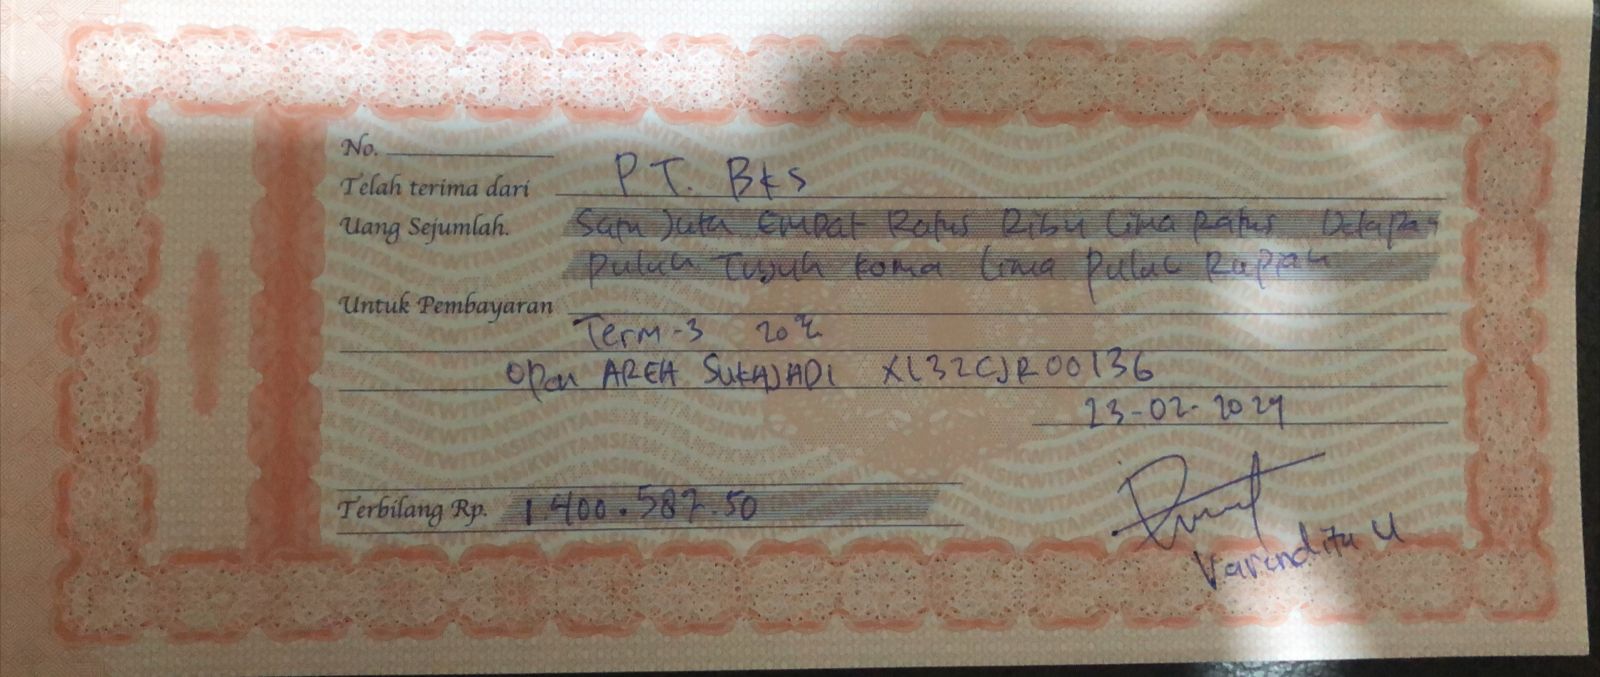 No.
Telah terima dari PT. BKS
Uang Sejumlah. Satu Juta Empat Ratus Ribu Lima Ratus Delapan
Puluh Tujuh Koma Lima Puluh Rupiah
Untuk Pembayaran
Term-3 20%
Opan AREA SUKAJADI XL32CJR00136
23-02-2024
Terbilang Rp. 1.400.587.50
Varanditu U